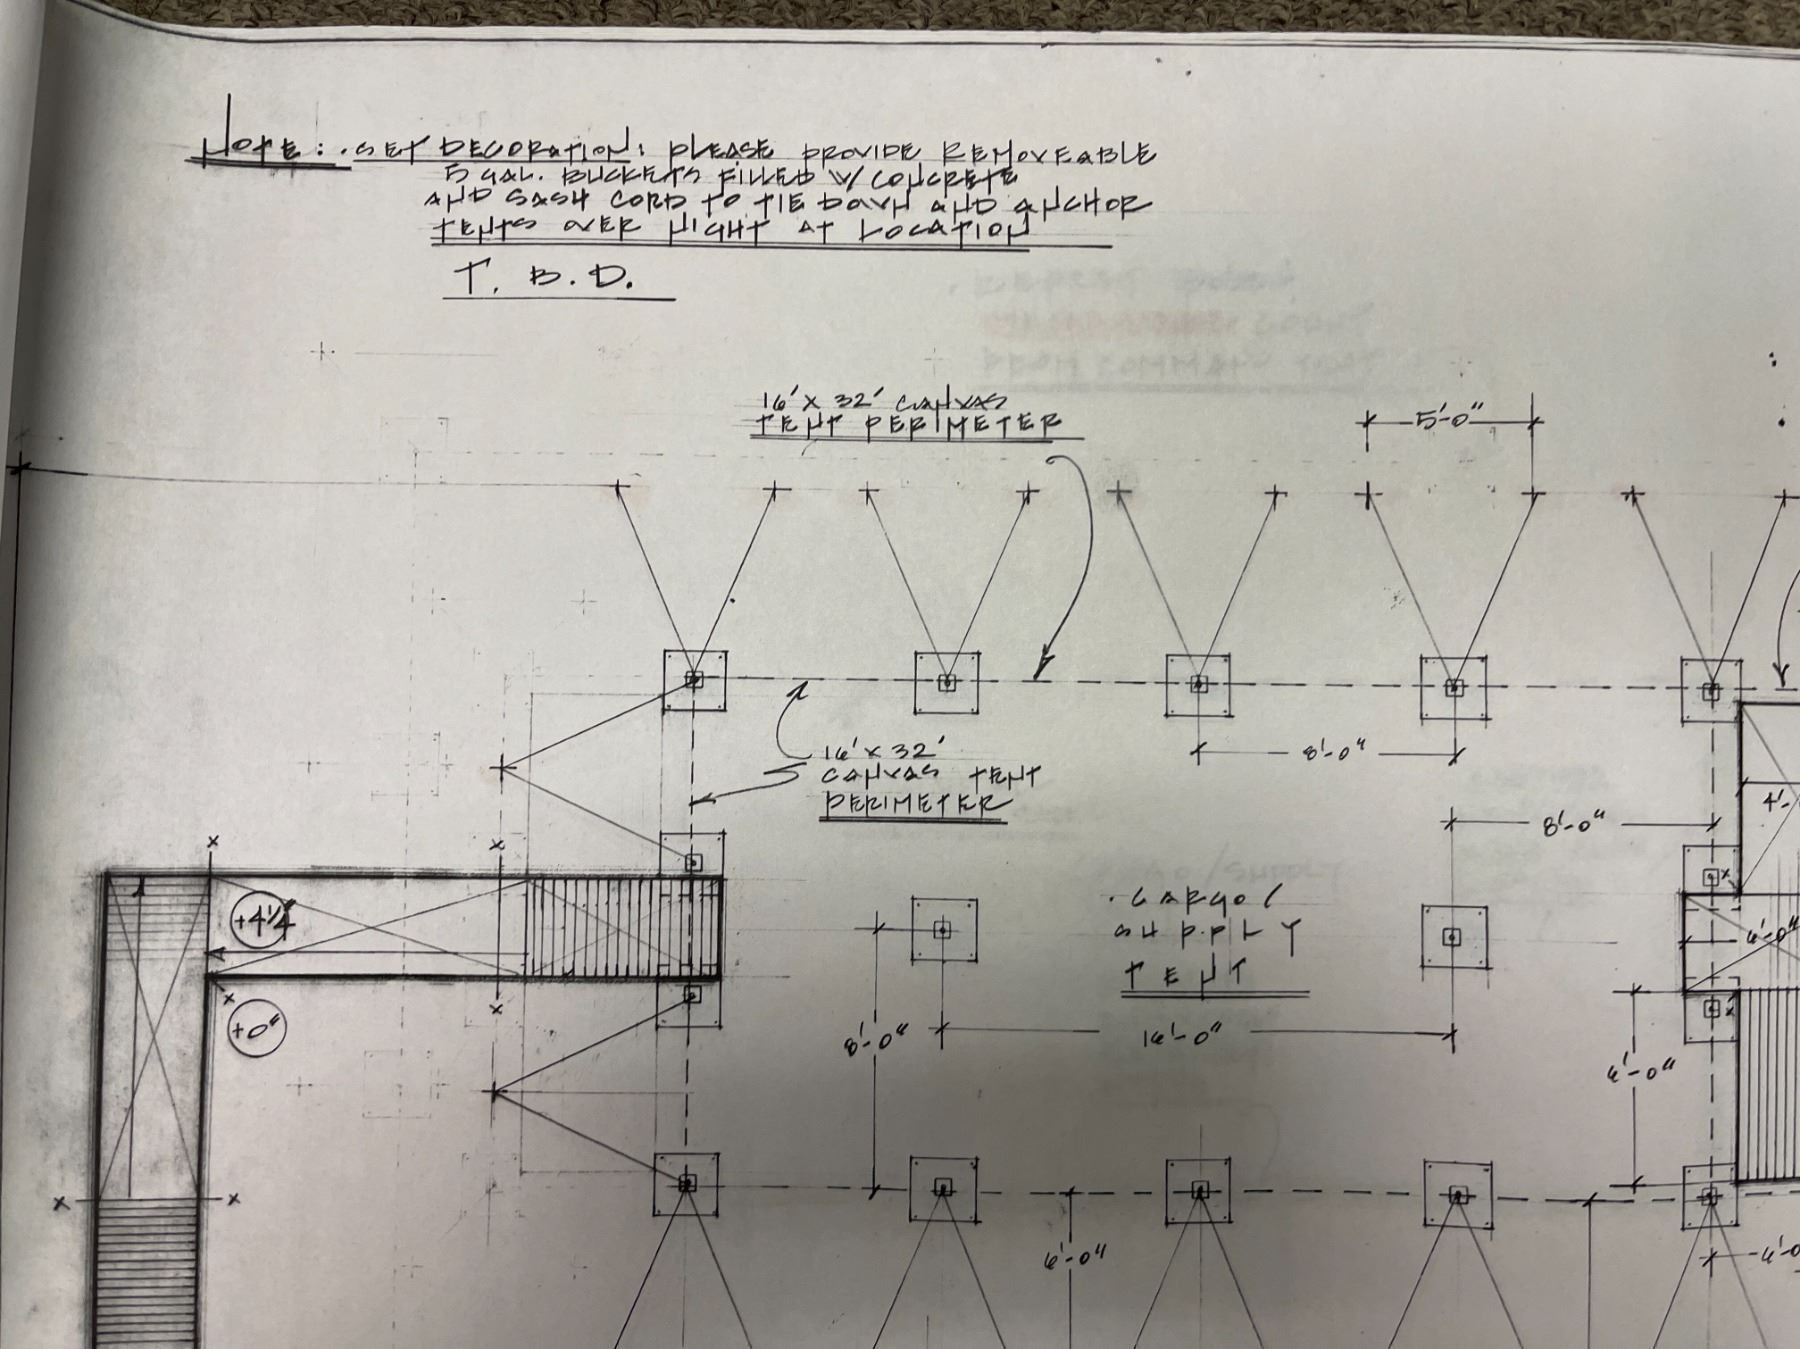 NOTE: . SET DECORATION: PLEASE PROVIDE REMOVEABLE
5 GAL. BUCKETS FILLED W/ CONCRETE
AND SASH CORD TO TIE DOWN AND ANCHOR
TENTS OVER NIGHT AT LOCATION
T. B. D.
16' X 32' CANVAS
TENT PERIMETER
5'-0"
16' X 32'
CANVAS TENT
PERIMETER
8'-0"
4'-
8'-0"
. CARGO /
SUPPLY
TENT
+4¼"
6'-0"
+0"
8'-0"
16'-0"
6'-0"
6'-0"